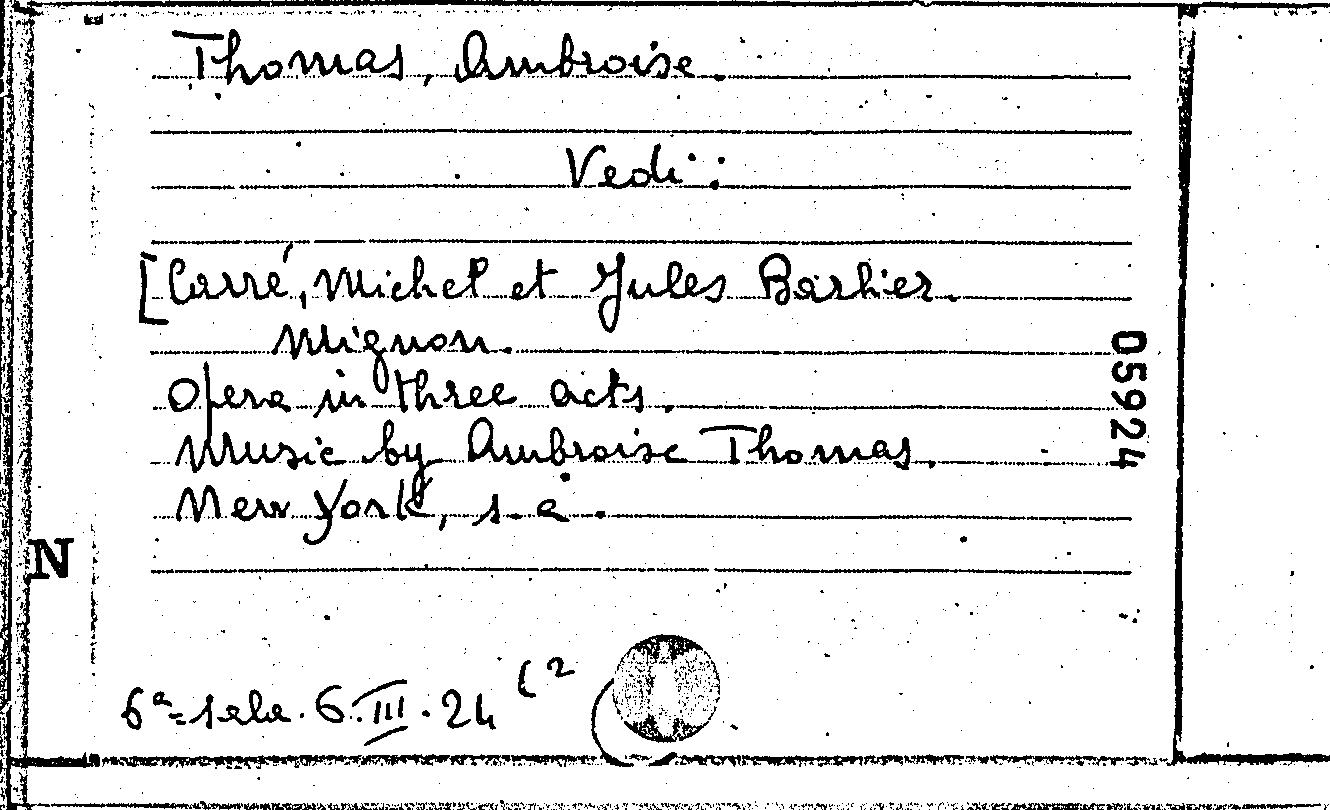 Thomas, Ambroise.
Vedi:
[Carré, Michel et Jules Barbier.
Mignon.
Opera in three acts.
Music by Ambroise Thomas.
New York, s.a.
05924
N
6ª=sala. 6.III.24 (2